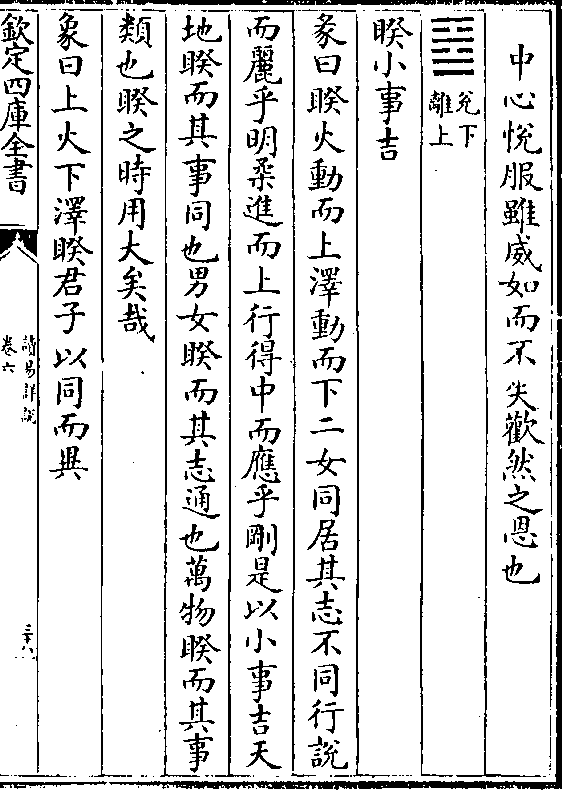 中心悅服雖威如而不失歡然之恩也
兌下
離上
睽小事吉
彖曰睽火動而上澤動而下二女同居其志不同行說
而麗乎明柔進而上行得中而應乎剛是以小事吉天
地睽而其事同也男女睽而其志通也萬物睽而其事
類也睽之時用大矣哉
象曰上火下澤睽君子以同而異
欽定四庫全書
讀易詳說
卷六